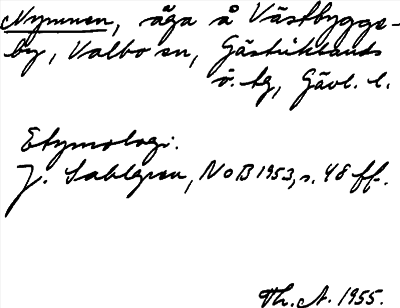 Nymnen, äga å Västbygge-
by, Valbo sn, Gästriklands
ö. tg, Gävl. l.
Etymologi.
J. Sahlgren, NoB 1953, s. 48 ff.
Th. A. 1955.